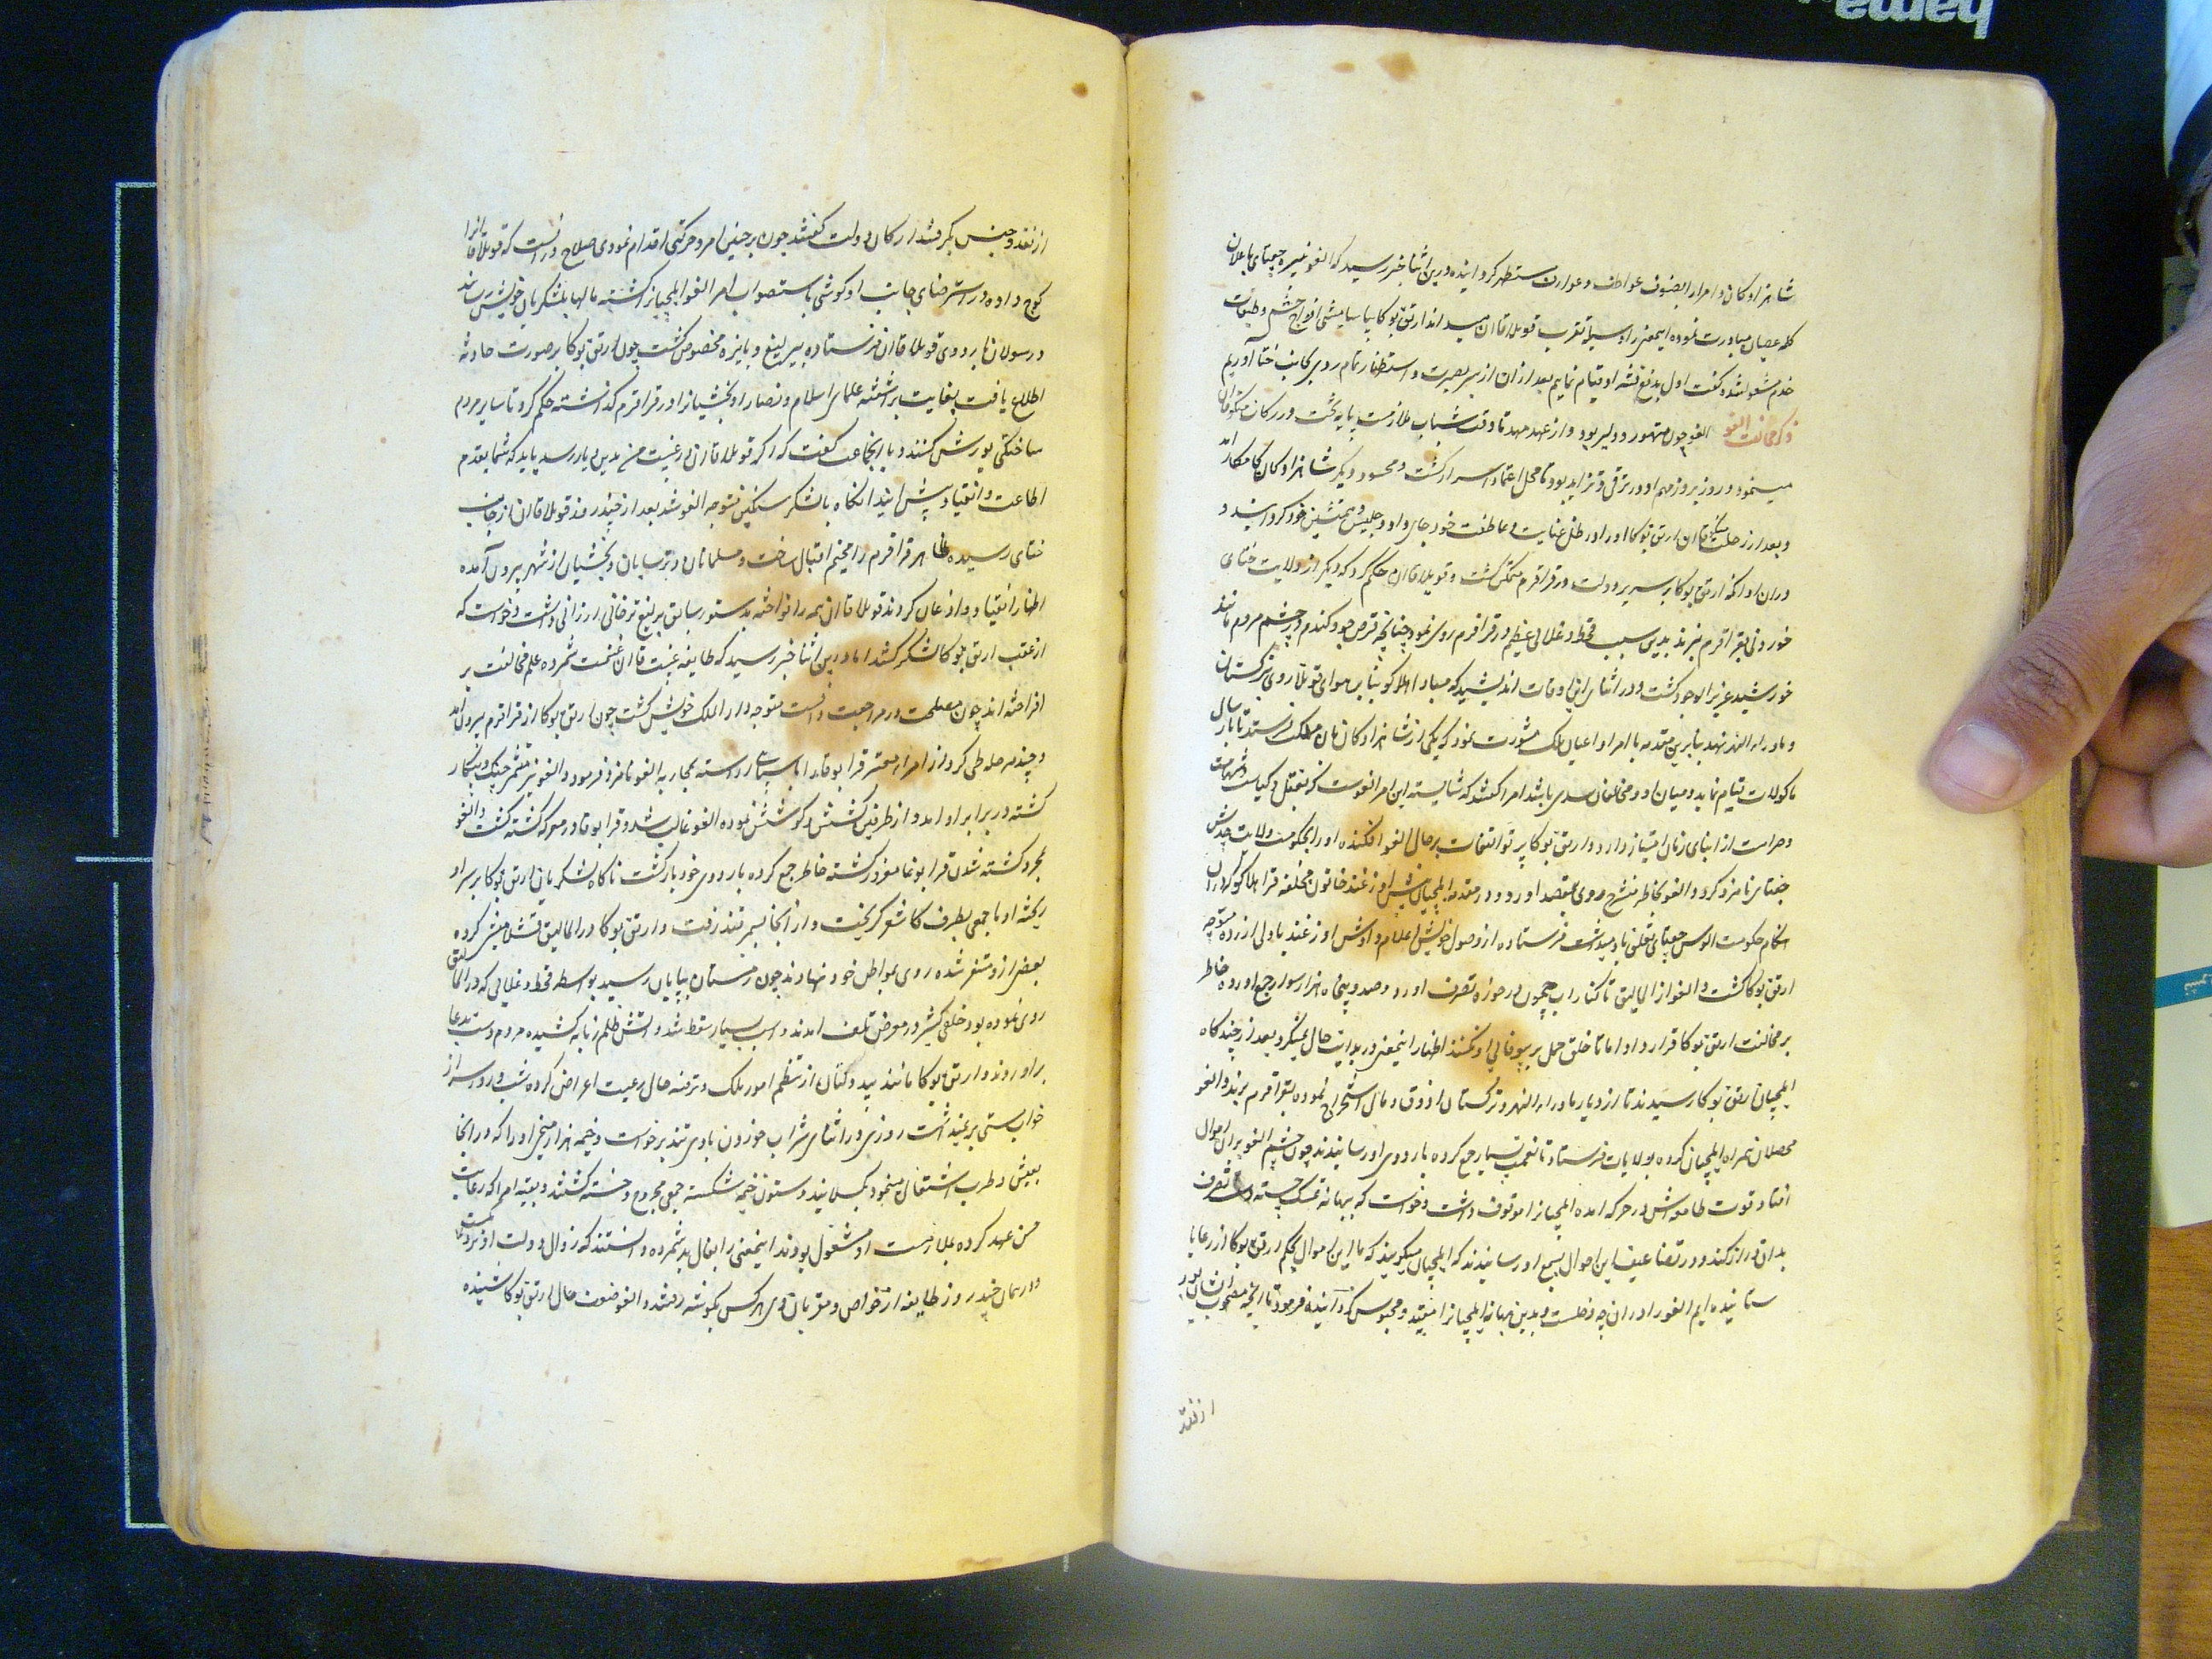 شاهزادکان و امرا را بصنوف عواطف و عوارف مستظهر کردانیده درین اثنا خبر رسید که الغو نبیره جغتای باعلان
کلمه عصیان مبادرت نموده اینمعنی را وسیله تقرب قوبلا قاآن میداند ارتق بوکا بیاسامیشی افواج حشم و طبقات
خدم مشغول شده گفت اول بدفع فتنه او قیام نماییم بعد از آن از سر بصیرت و استظهار تمام روی بجانب ختا آوریم
ذکر مخالفت الغو الغو چون متهور و دلیر بود و از عهد مهد تا وقت شباب ملازمت پایه تخت و ارکان منکوقاآن
مینمود و روز بروز مهم او در ترقی و تزاید بود تا محل اعتماد اسرار گشت و محسود دیگر شاهزادکان کامکار آمد
و بعد از رحلت منکو قاآن ارتق بوکا او را در ظل عنایت و عاطفت خود جای داد و جلیس و همنشین خود کردانید و
در آن اوان که ارتق بوکا بر سریر دولت در قراقرم متمکن گشت و قوبیلا قاآن حکم کرد که دیگر از ولایت ختای
خوردنی بقراقرم نبرند بدین سبب قحط و غلائی عظیم در قراقرم روی نمود چنانچه قرص جو و گندم در چشم مردم مانند
خورشید عزیز الوجود گشت و در اثنای این اوقات اندیشید که مبادا هلاکو بنا بر هوای قوبلا روی بترکستان
و ماوراء النهر نهد بنابرین مقدمه با امرا و اعیان ملک مشورت نمود که یکی از شاهزادکان بآن ملک فرستد تا بارسال
ماکولات قیام نماید و میان او و مخالفان سدی باشد امرا گفتند که شایسته این امر الغوست که بعقل و کیاست و شهامت
و صرامت از ابنای زمان امتیاز دارد و ارتق بوکا پرتو التفات بر حال الغو افکنده او را بحکومت ولایت جدش
جغتای نامزد کرد و الغو بخاطر منشرح روی بمقصد آورد و در مقدمه ایلچیان پیش اورغنه خاتون مخلفه قرا هلاکو که در آن
هنگام حکومت الوس جغتای تعلق باو میداشت فرستاده از وصول خویش اعلام داد و اورغنه باولی آزرده متوجه
ارتق بوکا گشت و الغو از المالیق تا کنار آب جیحون در حوزه تصرف آورد و صد و پنجاه هزار سوار جمع آورده خاطر
بر مخالفت ارتق بوکا قرار داد اما تا خلق حمل بر بیوفائی او نکنند اظهار اینمعنی در بدایت حال نمیکرد بعد از چندگاه
ایلچیان ارتق بوکا رسیدند تا از دیار ماوراء النهر و ترکستان آذوق و مال استخراج نموده بقراقرم برند و الغو
محصلان همراه ایلچیان کرده بولایات فرستاد تا نعمت بسیار جمع کرده باردوی او رسانیدند چون چشم الغو بر آن اموال
افتاد قوت طامعه‌اش در حرکت آمده ایلچیان را موقوف داشت و خواست که ببهانه تمسک جسته دست تصرف
بدان دراز کند و در تضاعیف این احوال بسمع او رسانیدند که ایلچیان میگویند که ما این اموال بحکم ارتق بوکا از رعایا
ستانیده‌ایم الغو را در آن چه دخلست و بدین بهانه ایلچیان را مقید و محبوس کردانیده فرمود تا آنچه مصحوب ایشان بود
از نقد
از نقد و جنس بگرفتند ارکان دولت گفتند چون بر چنین امر و حرکتی اقدام نمودی صلاح در آنست که قوبلا قاآن را
کوچ داده در استرضای جانب او کوشی باستصواب امرا الغو ایلچیان را کشته مالها بلشکریان خویش رسانید
و رسولان باردوی قوبلا قاآن فرستاده بیرلیغ و پایزه مخصوص گشت چون ارتق بوکا بر صورت حادثه
اطلاع یافت بغایت برآشفته علمای اسلام و نصارا و بخشیان را در قراقرم گذاشته حکم کرد تا سایر مردم
ساختگی یورش کنند و با آن جماعت گفت که اگر قوبلا قاآن در غیبت من بدین دیار رسد باید که شما بقدم
اطاعت و انقیاد پیش آیید آنگاه با لشکر سنگین متوجه الغو شد بعد از چند روز قوبلا قاآن از جانب
ختای رسیده ظاهر قراقرم را مخیم اقبال ساخت و مسلمانان و ترسایان و بخشیان از شهر بیرون آمده
اظهار انقیاد و اذعان کردند قوبلا قاآن همه را نواخته بدستور سابق یرلیغ ترخانی ارزانی داشت و خواست که
از عقب ارتق بوکا لشکر کشد اما درین اثنا خبر رسید که طایفه غیبت قاآن غنیمت شمرده علم مخالفت بر
افراخته‌اند چون مصلحت در مراجعت دانست متوجه دار الملک خویش گشت چون ارتق بوکا از قراقرم بیرون آمد
و چند مرحله طی کرد از امراء معتبر قرا بوقا را با سپاهی آراسته بمحاربه الغو نامزد فرمود و الغو نیز متشمر جنگ و پیکار
گشته در برابر او آمد و از طرفین کشش و کوشش نموده الغو غالب شد و قرا بوقا در معرکه کشته گشت و الغو
بمجرد کشته شدن قرا بوقا مغرور گشته خاطر جمع کرده باردوی خود بازگشت ناگاه لشکریان ارتق بوکا بر سر او
ریخته او با جمعی بطرف کاشغر گریخت و از آنجا بسمرقند رفت و ارتق بوکا در المالیق قشلامیشی کرده
بعضی از و متنفر شده روی بمواطن خود نهادند چون زمستان بپایان رسید بواسطه قحط و غلائی که در المالیق
روی نموده بود خلقی کثیر در معرض تلف آمدند و اسب بسیار سقط شد و آتش ظلم زبانه کشیده مردم دست بدعا
برآوردند و ارتق بوکا مانند از نظم امور ملک و ترفیه حال رعیت اعراض کرده شب و روز سر از
خواب مستی بر نمیداشت روزی در اثنای شراب خوردن بادی تند برخواست و خیمه هزار میخی او را که در آنجا
بعیش و طرب اشتغال مینمود بگسلانید و ستون خیمه شکسته جمعی مجروح و خسته گشتند و بقیه امرا که رعایت
حسن عهد کرده بملازمت او مشغول بودند اینمعنی را بفال بد شمرده دانستند که زوال دولت او نزدیکست
در همان چند روز طایفه از خواص و مقربان وی هر کس بگوشه رفتند و الغو ضعف حال ارتق بوکا شنیده